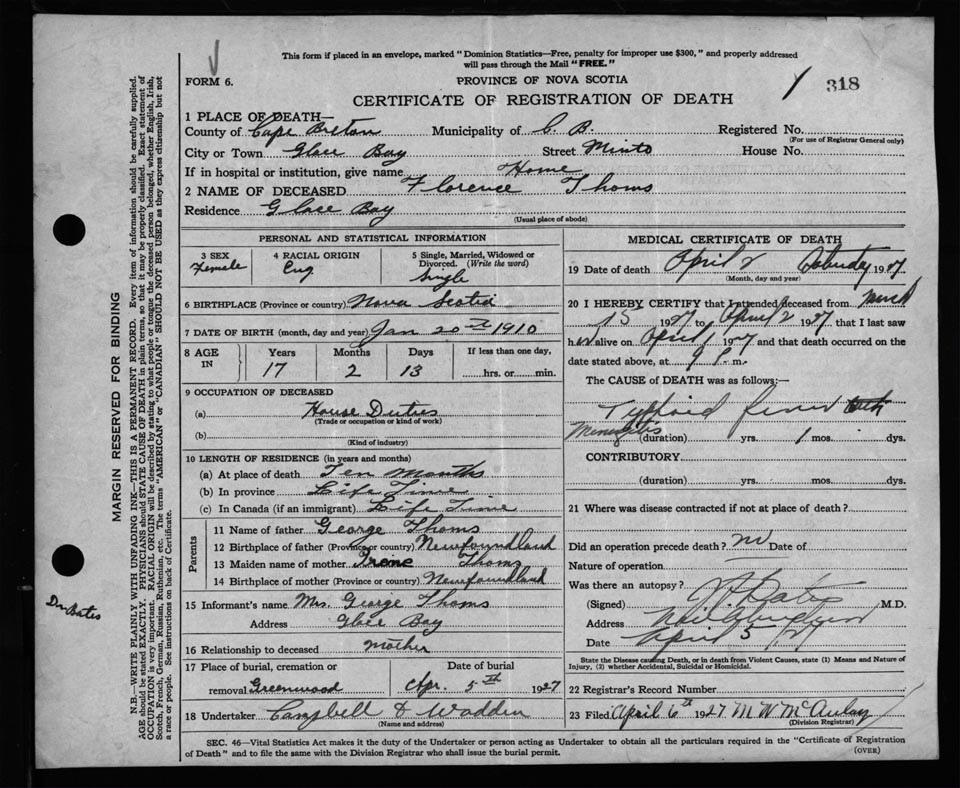 This form if placed in an envelope, marked "Dominion Statistics—Free, penalty for improper use $300," and properly addressed
will pass through the Mail "FREE."
FORM 6.
PROVINCE OF NOVA SCOTIA
318
CERTIFICATE OF REGISTRATION OF DEATH
1 PLACE OF DEATH—
County of Cape Breton Municipality of C. B. Registered No.
(For use of Registrar General only)
City or Town Glace Bay Street Minto House No.
If in hospital or institution, give name Home
2 NAME OF DECEASED Florence Thoms
Residence Glace Bay
(Usual place of abode)
PERSONAL AND STATISTICAL INFORMATION
3 SEX 4 RACIAL ORIGIN 5 Single, Married, Widowed or
Divorced. (Write the word)
Female Eng Single
6 BIRTHPLACE (Province or country) Nova Scotia
7 DATE OF BIRTH (month, day and year) Jan 20th 1910
8 AGE IN Years Months Days If less than one day,
17 2 13 hrs. or min.
9 OCCUPATION OF DECEASED
(a) House Duties
(Trade or occupation or kind of work)
(b)
(Kind of industry)
10 LENGTH OF RESIDENCE (in years and months)
(a) At place of death Ten Months
(b) In province Life Time
(c) In Canada (if an immigrant) Life Time
Parents
11 Name of father George Thoms
12 Birthplace of father (Province or country) Newfoundland
13 Maiden name of mother Irene Thoms
14 Birthplace of mother (Province or country) Newfoundland
15 Informant's name Mrs. George Thoms
Address Glace Bay
16 Relationship to deceased Mother
17 Place of burial, cremation or Date of burial
removal Greenwood Apr. 5th 1927
18 Undertaker Campbell & Wadden
(Name and address)
MEDICAL CERTIFICATE OF DEATH
19 Date of death April 2 Saturday 1927
(Month, day and year)
20 I HEREBY CERTIFY that I attended deceased from March
15 1927 to April 2 1927 that I last saw
her alive on April 1 1927 and that death occurred on the
date stated above, at 9 P. m.
The CAUSE of DEATH was as follows:—
Typhoid fever with
Meningitis (duration) yrs. 1 mos. dys.
CONTRIBUTORY
(duration) yrs. mos. dys.
21 Where was disease contracted if not at place of death?
Did an operation precede death? no Date of
Nature of operation
Was there an autopsy?
(Signed) Bates M.D.
Address
Date April 5 / 27
State the Disease causing Death, or in death from Violent Causes, state (1) Means and Nature of
Injury, (2) whether Accidental, Suicidal or Homicidal.
22 Registrar's Record Number
23 Filed April 6th 1927 M W McAulay
(Division Registrar)
SEC. 46—Vital Statistics Act makes it the duty of the Undertaker or person acting as Undertaker to obtain all the particulars required in the "Certificate of Registration
of Death" and to file the same with the Division Registrar who shall issue the burial permit.
(OVER)
MARGIN RESERVED FOR BINDING
N.B.—WRITE PLAINLY WITH UNFADING INK—THIS IS A PERMANENT RECORD. Every item of information should be carefully supplied.
AGE should be stated EXACTLY. PHYSICIANS should STATE CAUSE OF DEATH in plain terms, so that it may be properly classified. Exact statement of
OCCUPATION is very important. RACIAL ORIGIN will be described by stating to what people or tongue the deceased person belonged, whether English, Irish,
Scotch, French, German, Russian, Ruthenian, etc. The terms "AMERICAN" or "CANADIAN" SHOULD NOT BE USED as they express citizenship but not
a race or people. See instructions on back of Certificate.
Dr. Bates